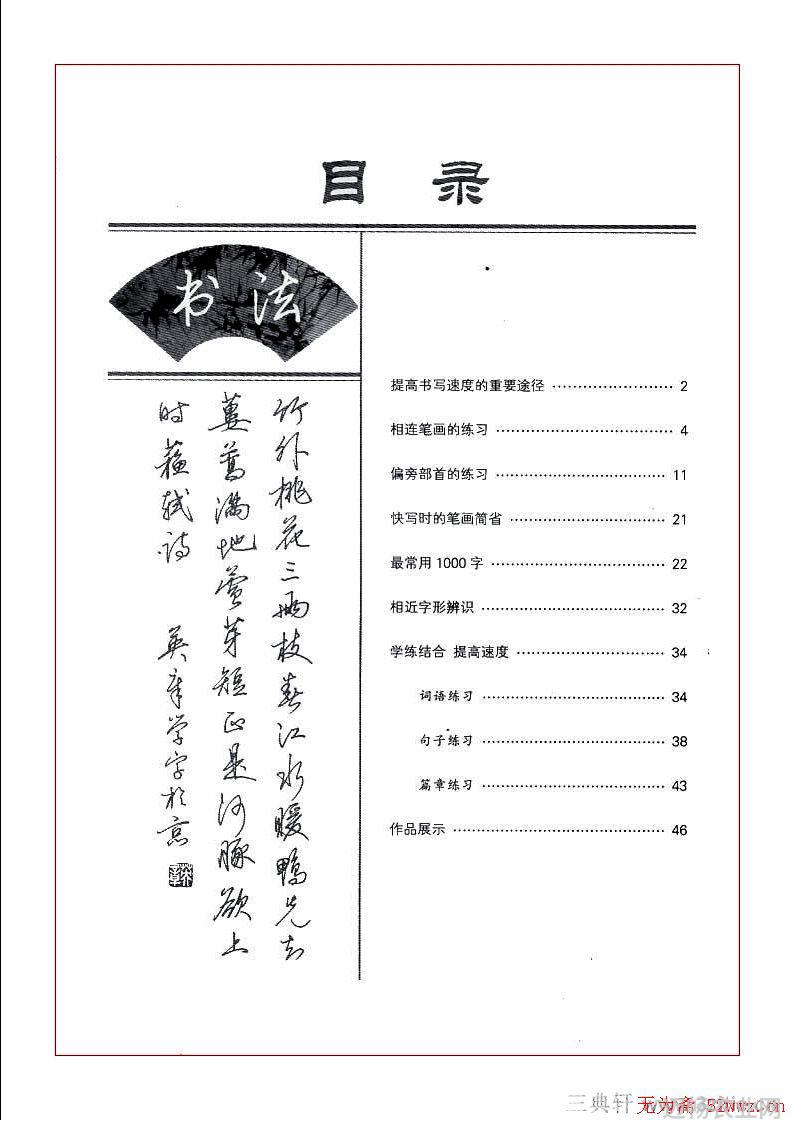 目 录
书法
竹外桃花三两枝春江水暖鸭先知
蒌蒿满地芦芽短正是河豚欲上
时蘇轼诗 英章学字於京
提高书写速度的重要途径 …………………… 2
相连笔画的练习 …………………… 4
偏旁部首的练习 …………………… 11
快写时的笔画简省 …………………… 21
最常用1000字 …………………… 22
相近字形辨识 …………………… 32
学练结合 提高速度 …………………… 34
词语练习 …………………… 34
句子练习 …………………… 38
篇章练习 …………………… 43
作品展示 …………………… 46
三典轩
无为斋 52wwz.cn